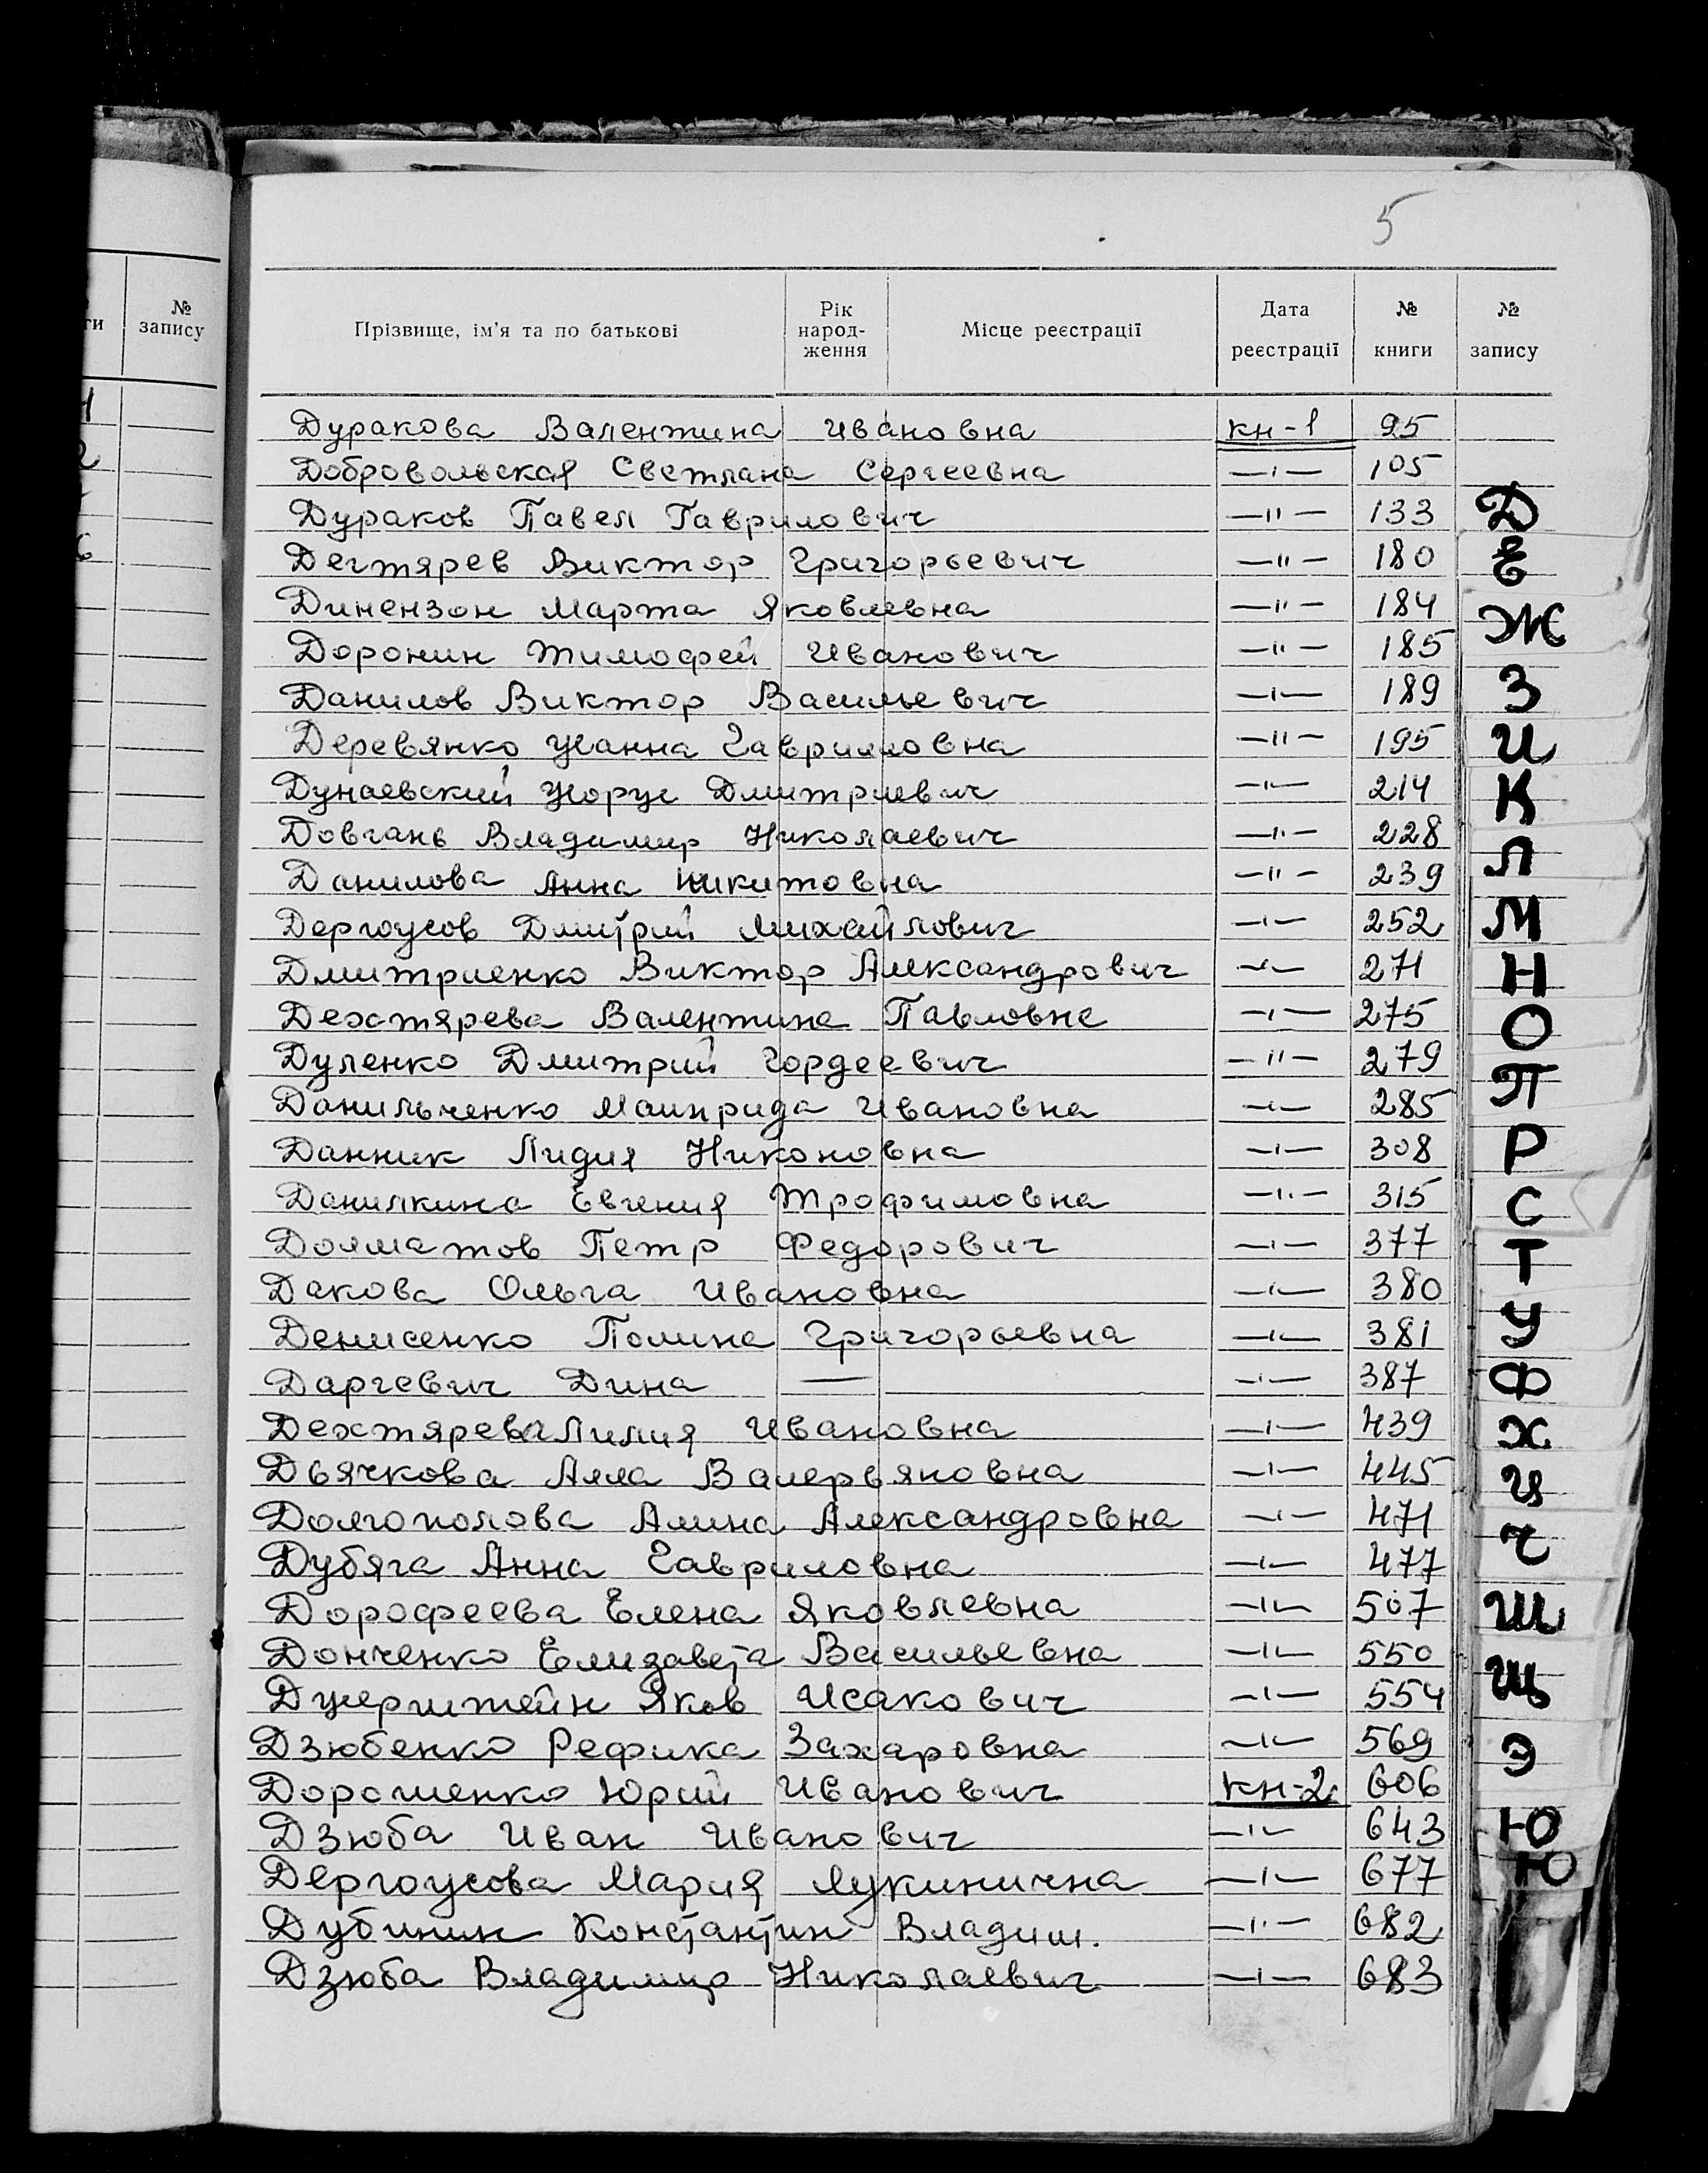 5
№ запису
Прізвище, ім'я та по батькові Рік народ- ження Місце реєстрації Дата реєстрації № книги № запису
Дуракова Валентина Ивановна кн-1 95
Добровольская Светлана Сергеевна —ı— 105
Дураков Павел Гаврилович —ıı— 133
Дегтярев Виктор Григорьевич —ıı— 180
Динензон Марта Яковлевна —ıı— 184
Доронин Тимофей Иванович —ıı— 185
Данилов Виктор Васильевич —ı— 189
Деревянко Жанна Гавриловна —ıı— 195
Дунаевский Жорус Дмитриевич —ıı— 214
Довгань Владимир Николаевич —ıı— 228
Данилова Анна Никитовна —ıı— 239
Дергоусов Дмитрий Михайлович —ı— 252
Дмитриенко Виктор Александрович —ı— 271
Дехтярева Валентина Павловна —ı— 275
Дуленко Дмитрий Гордеевич —ıı— 279
Данильченко Ивановна —ı— 285
Данник Лидия Никоновна —ı— 308
Данилкина Евгения Трофимовна —ıı— 315
Долматов Петр Федорович —ı— 377
Дакова Ольга Ивановна —ı— 380
Денисенко Полина Григорьевна —ı— 381
Даргевич Дина — —ı— 387
Дехтярева Лилия Ивановна —ı— 439
Дьячкова Алла Валерьяновна —ı— 445
Долгополова Алина Александровна —ı— 471
Дубяга Анна Гавриловна —ı— 477
Дорофеева Елена Яковлевна —ı— 507
Донченко Елизавета Васильевна —ı— 550
Яков Исакович —ı— 554
Дзюбенко Рефика Захаровна —ı— 569
Дорошенко Юрий Иванович кн-2 606
Дзюба Иван Иванович —ı— 643
Дергоусова Мария Лукинична —ı— 677
Дубинин Константин Владим. —ıı— 682
Дзюба Владимир Николаевич —ı— 683
Д
Е
Ж
З
И
К
Л
М
Н
О
П
Р
С
Т
У
Ф
Х
Ц
Ч
Ш
Щ
Э
Ю
Ю